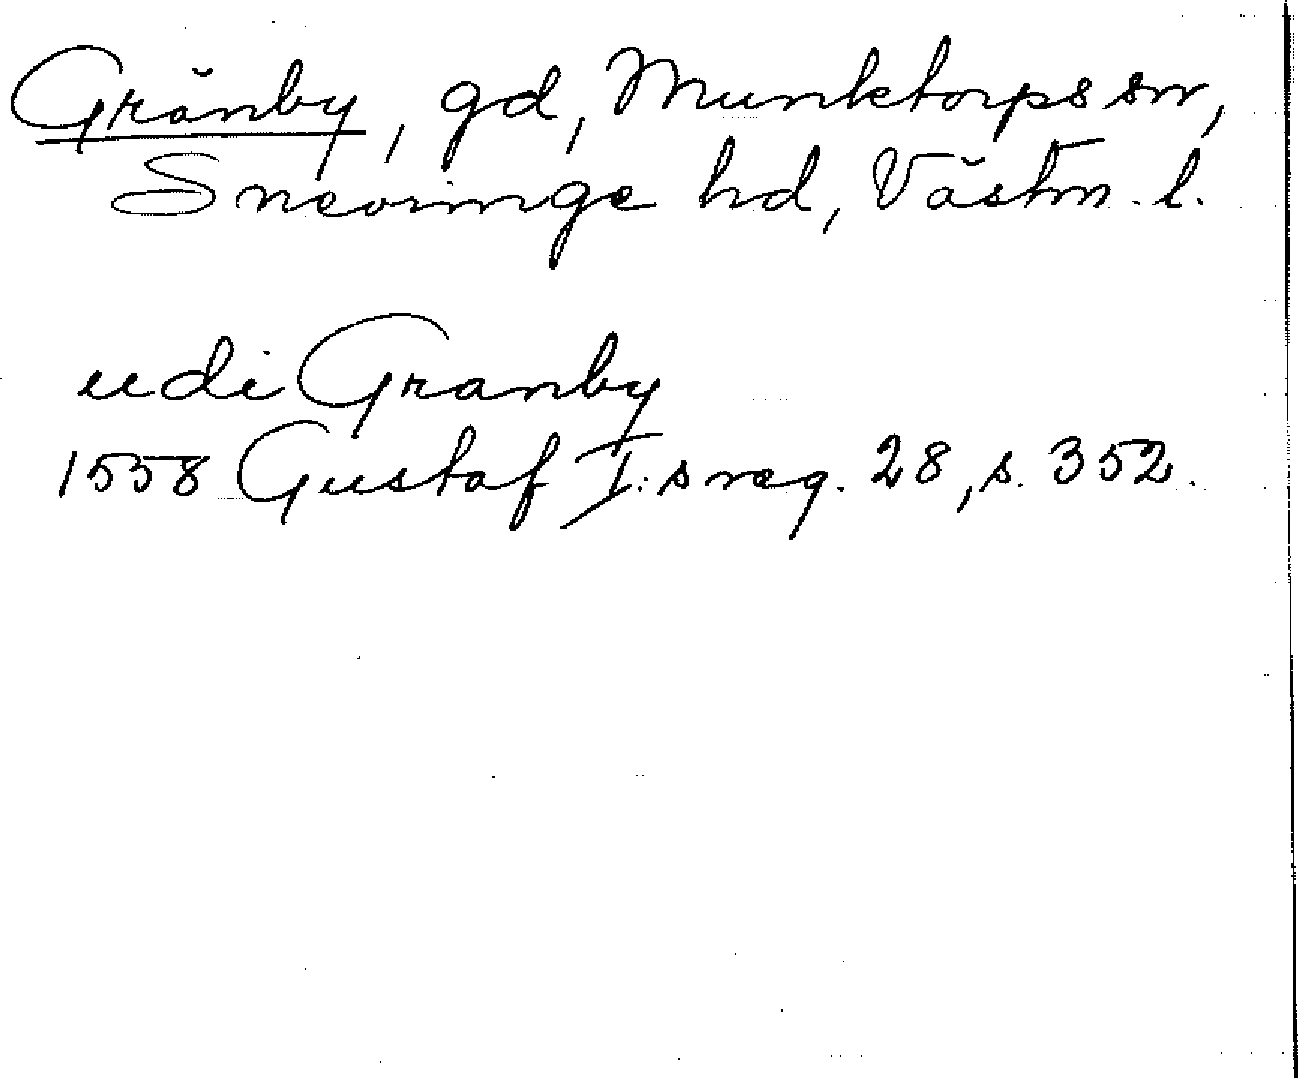 Gränby, gd, Munktorps sn,
Snevringe hd, Västm. l.
udi Granby
1558 Gustaf I:s reg. 28, s. 352.